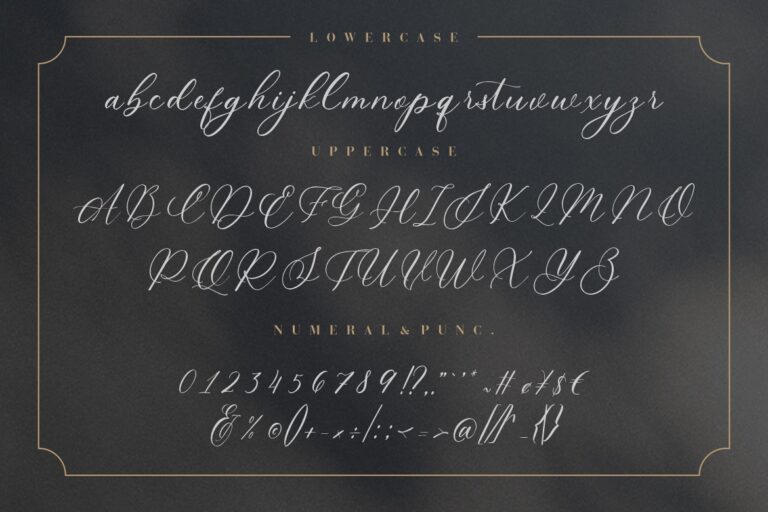 LOWERCASE
abcdefghijklmnopqrstuvwxyzr
UPPERCASE
ABCDEFGHIJKLMNO
PQRSTUVWXYZ
NUMERAL&PUNC.
0123456789!?,."``''* ~# ¢¥$€
&%©()+-×÷/:;<=>@[]_{}